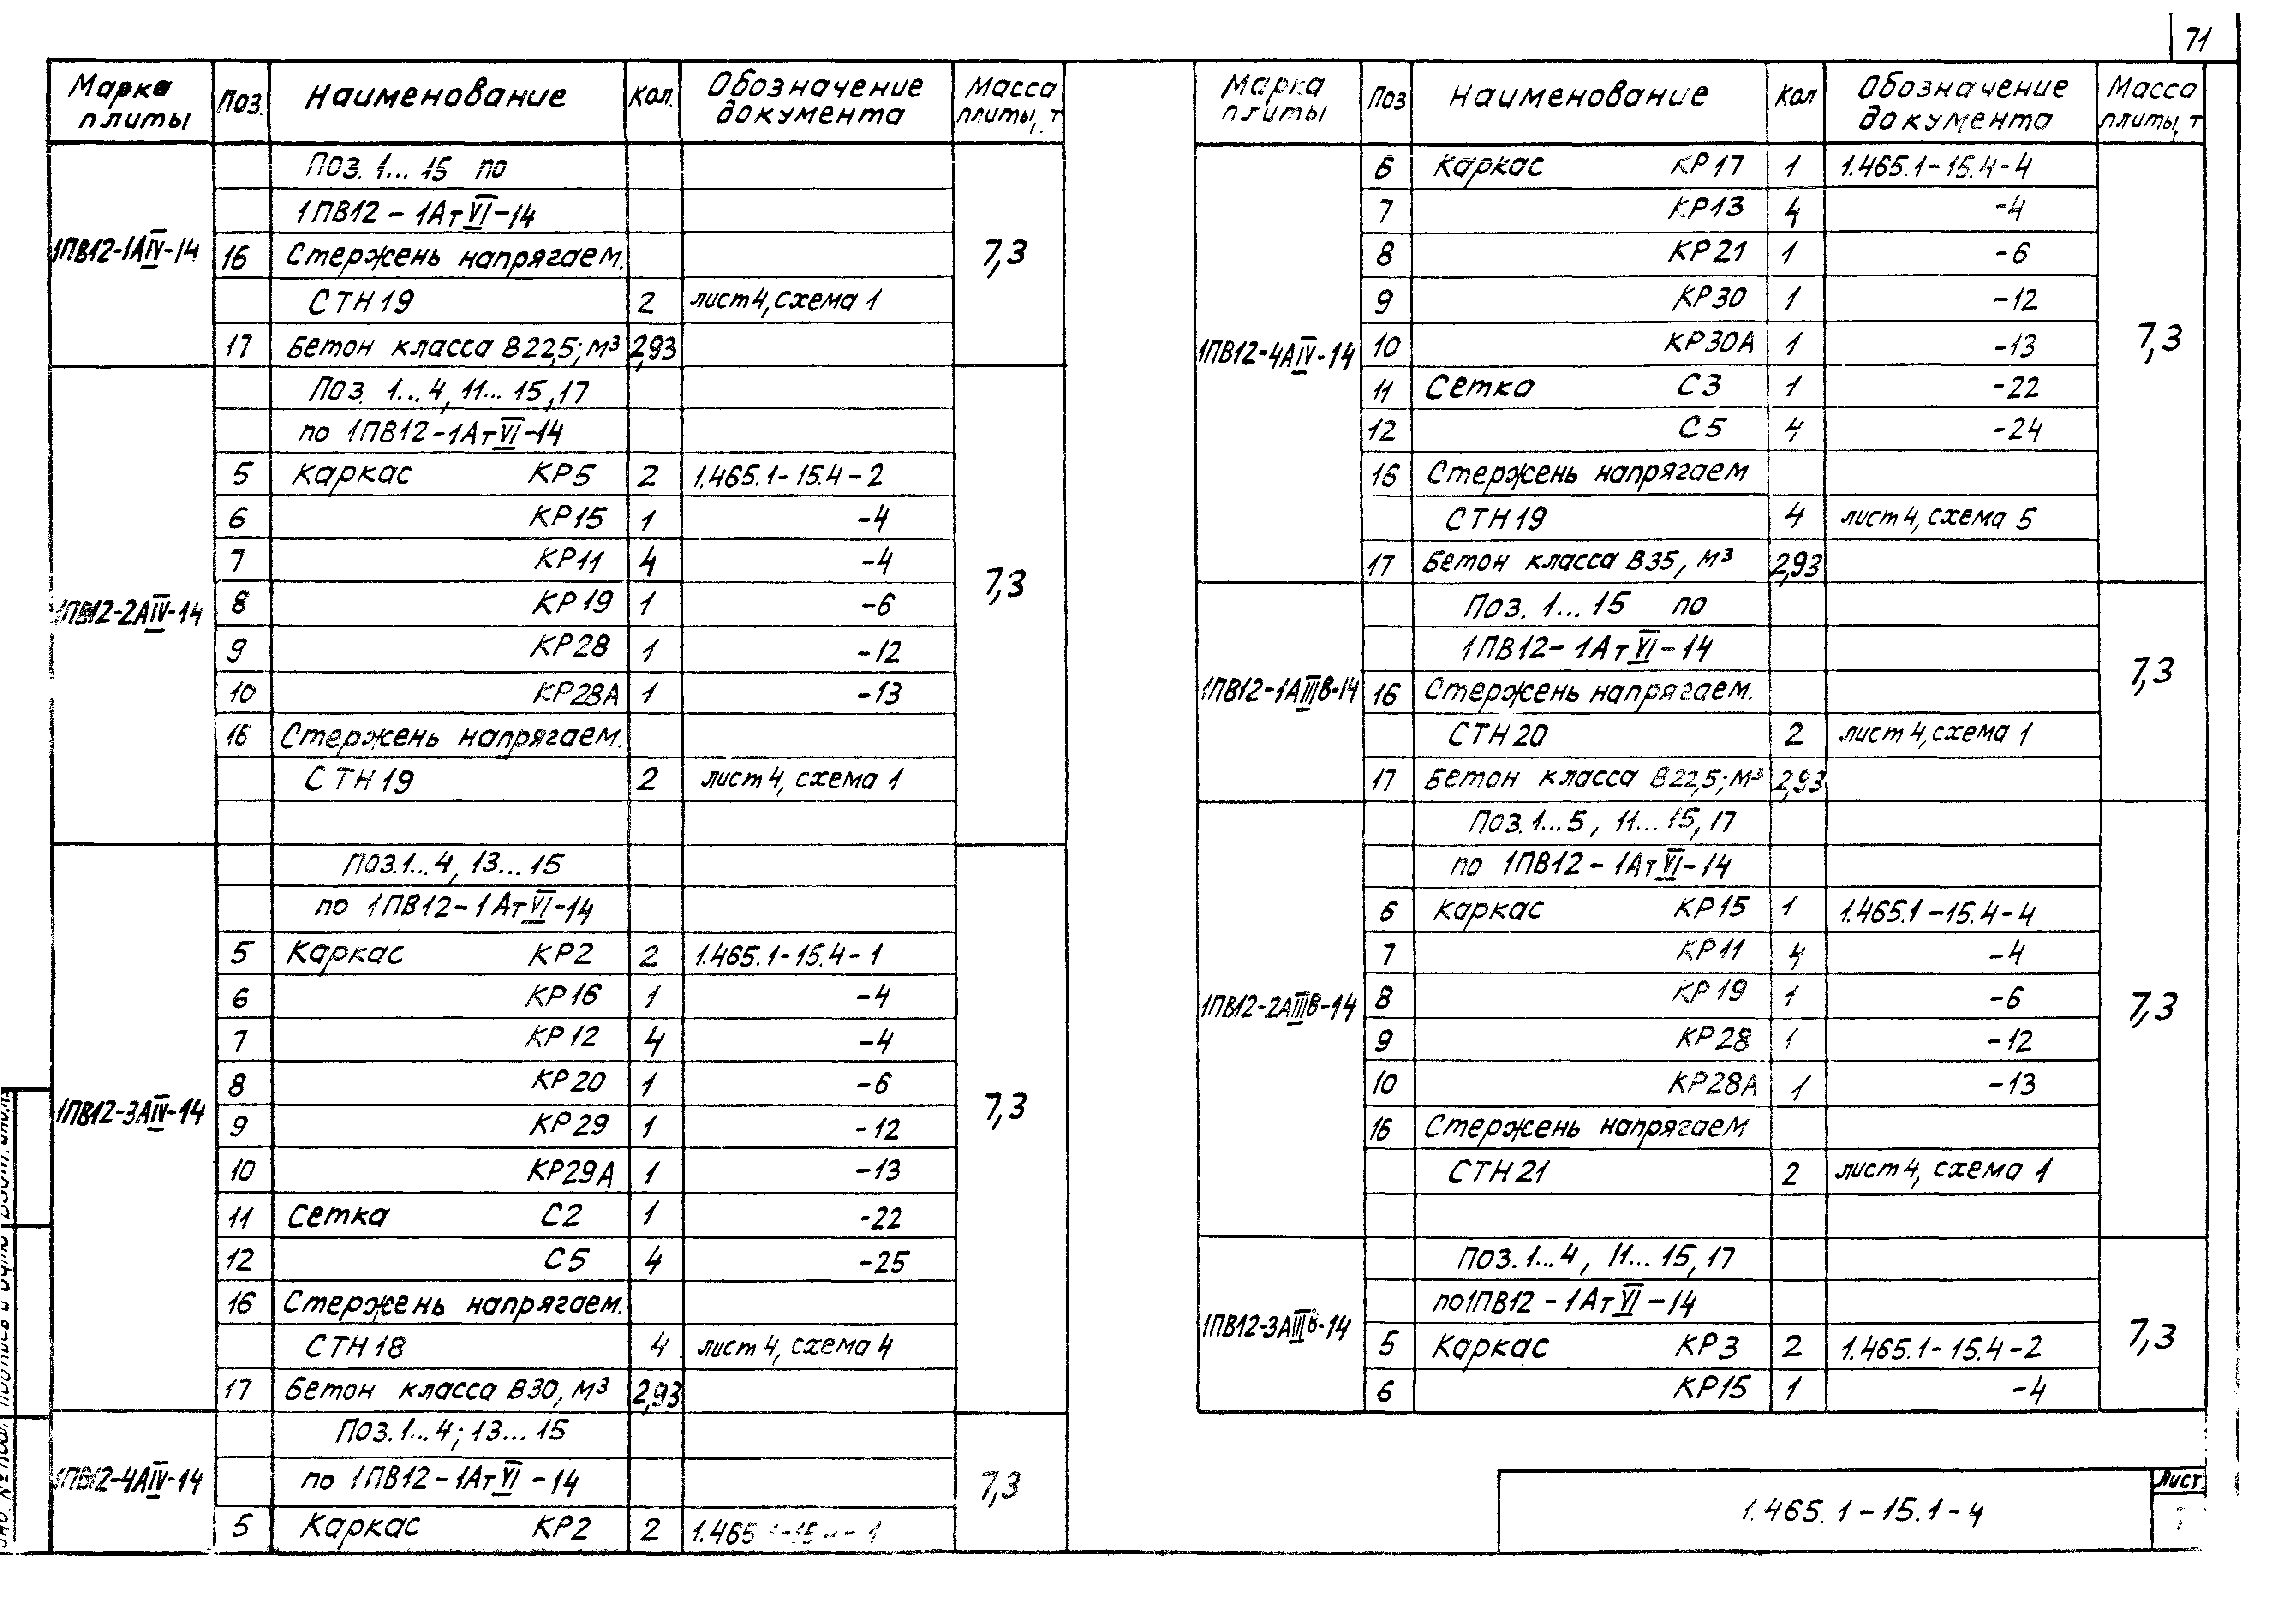 71
Марка плиты Поз. Наименование Кол. Обозначение документа Масса плиты, т
Поз. 1...15 по
1ПВ12-1АтVI-14
1ПВ12-1АIV-14 16 Стержень напрягаем. 7,3
СТН19 2 лист 4, схема 1
17 Бетон класса В22,5; м³ 2,93
Поз. 1...4, 11...15, 17
по 1ПВ12-1АтVI-14
5 Каркас КР5 2 1.465.1-15.4-2
6 КР15 1 -4
7 КР11 4 -4
1ПВ12-2АIV-14 8 КР19 1 -6 7,3
9 КР28 1 -12
10 КР28А 1 -13
16 Стержень напрягаем.
СТН19 2 лист 4, схема 1
Поз. 1...4, 13...15
по 1ПВ12-1АтVI-14
5 Каркас КР2 2 1.465.1-15.4-1
6 КР16 1 -4
7 КР12 4 -4
8 КР20 1 -6
1ПВ12-3АIV-14 9 КР29 1 -12 7,3
10 КР29А 1 -13
11 Сетка С2 1 -22
12 С5 4 -25
16 Стержень напрягаем.
СТН18 4 лист 4, схема 4
17 Бетон класса В30, м³ 2,93
Поз. 1...4; 13...15
1ПВ12-4АIV-14 по 1ПВ12-1АтVI-14 7,3
5 Каркас КР2 2 1.465
Марка плиты Поз Наименование Кол Обозначение документа Масса плиты, т
6 Каркас КР17 1 1.465.1-15.4-4
7 КР13 4 -4
8 КР21 1 -6
9 КР30 1 -12
1ПВ12-4АIV-14 10 КР30А 1 -13 7,3
11 Сетка С3 1 -22
12 С5 4 -24
16 Стержень напрягаем
СТН19 4 лист 4, схема 5
17 Бетон класса В35, м³ 2,93
Поз. 1...15 по
1ПВ12-1АтVI-14
1ПВ12-1АIIIВ-14 16 Стержень напрягаем. 7,3
СТН20 2 лист 4, схема 1
17 Бетон класса В22,5; м³ 2,93
Поз. 1...5, 11...15, 17
по 1ПВ12-1АтVI-14
6 Каркас КР15 1 1.465.1-15.4-4
7 КР11 4 -4
1ПВ12-2АIIIВ-14 8 КР19 1 -6 7,3
9 КР28 1 -12
10 КР28А 1 -13
16 Стержень напрягаем
СТН21 2 лист 4, схема 1
Поз. 1...4, 11...15, 17
по 1ПВ12-1АтVI-14
1ПВ12-3АIIIВ-14 5 Каркас КР3 2 1.465.1-15.4-2 7,3
6 КР15 1 -4
1.465.1-15.1-4
Лист